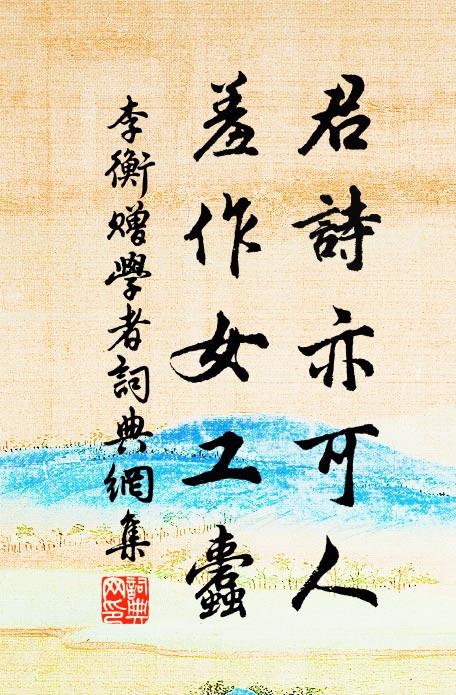 君詩亦可人
羞作女工蠹
李衡贈學者詞典網集
詞典網印